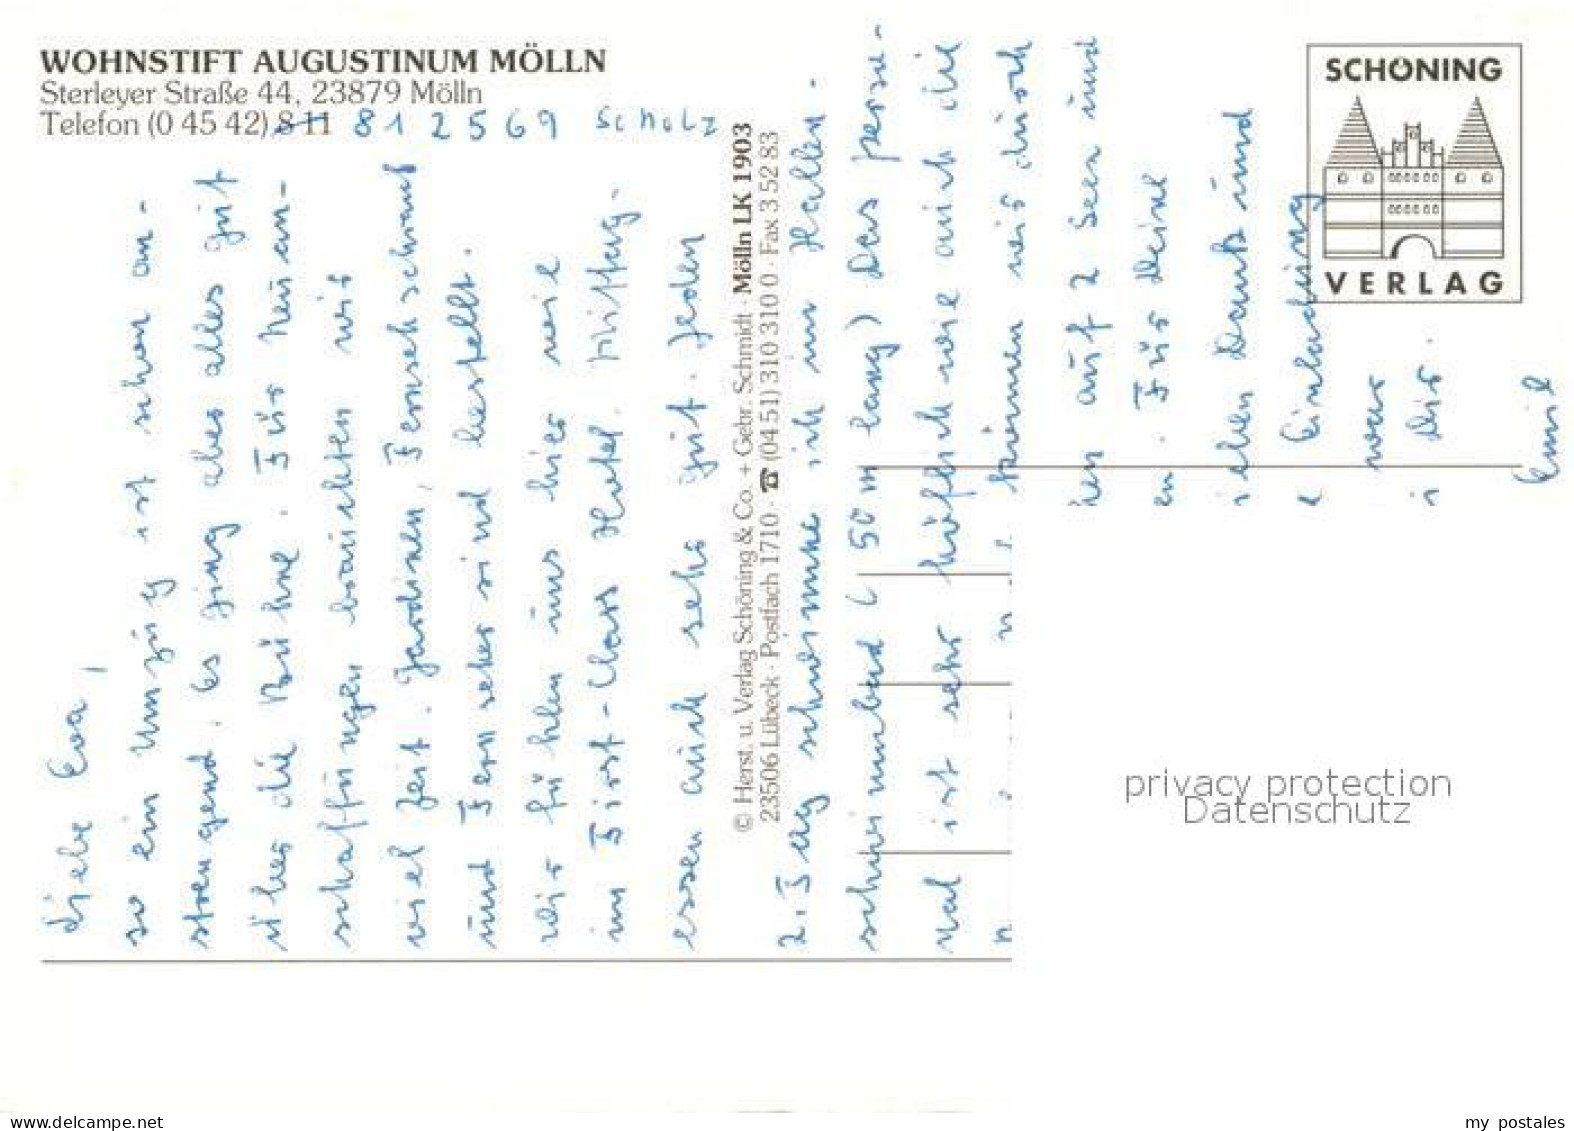 WOHNSTIFT AUGUSTINUM MÖLLN
Sterleyer Straße 44, 23879 Mölln
Telefon (0 45 42) 8 11 812569 Scholz
SCHÖNING
VERLAG
Liebe Eva,
so ein Umzug ist schon an-
strengend. Es ging aber alles gut
über die Bühne. Für Neuan-
schaffungen brauchten wir
viel Zeit. Gardinen, Fernsehschrank
und Fernseher sind bestellt.
Wir fühlen uns hier wie
im First-Class Hotel. Mittag-
essen auch sehr gut. Jeden
© Herst. u. Verlag Schöning & Co. + Gebr. Schmidt · Mölln LK 1903
23506 Lübeck · Postfach 1710 · ☎ (04 51) 310 310 0 · Fax 3 52 83
2. Tag schwimme ich im Hallen-
schwimmbad (50 m lang) Das Perso-
nal ist sehr höflich wie auch die
können wir durch
hen auf 2 Seen und
en. Für Deine
ichen Dank und
e Einladung
war
i Dir.
Emil
privacy protection
Datenschutz
www.delcampe.net
my_postales